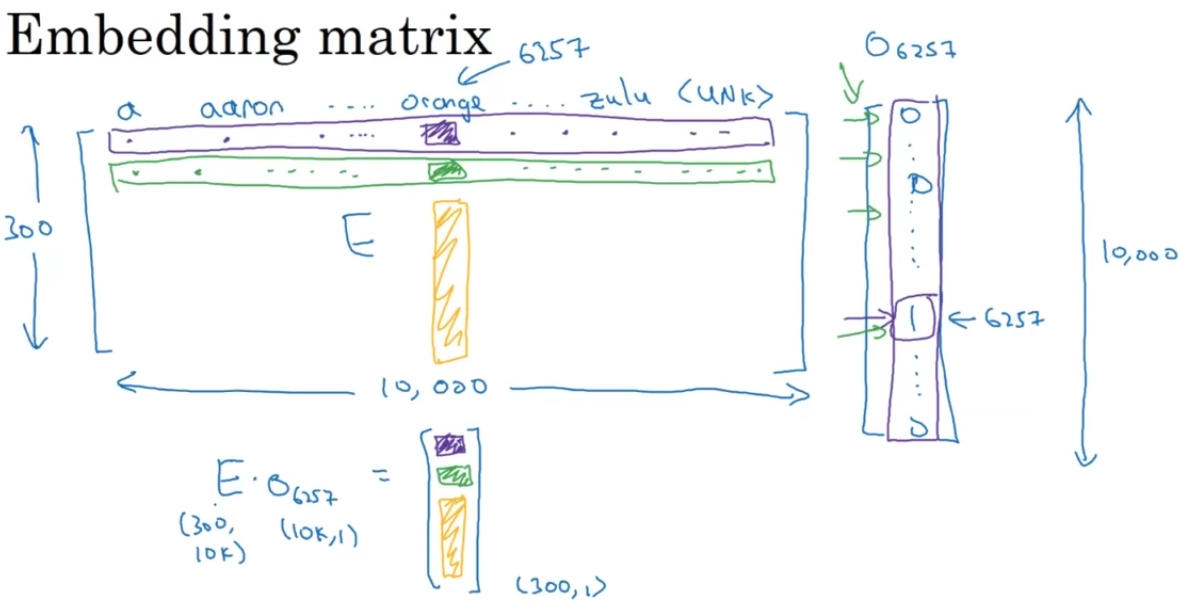 Embedding matrix
6257
O6257
a aaron ..... orange ..... zulu <UNK>
0
0
300
E
10,000
1 ← 6257
10,000
0
E · O6257 =
(300, 10K) (10K,1)
(300,1)